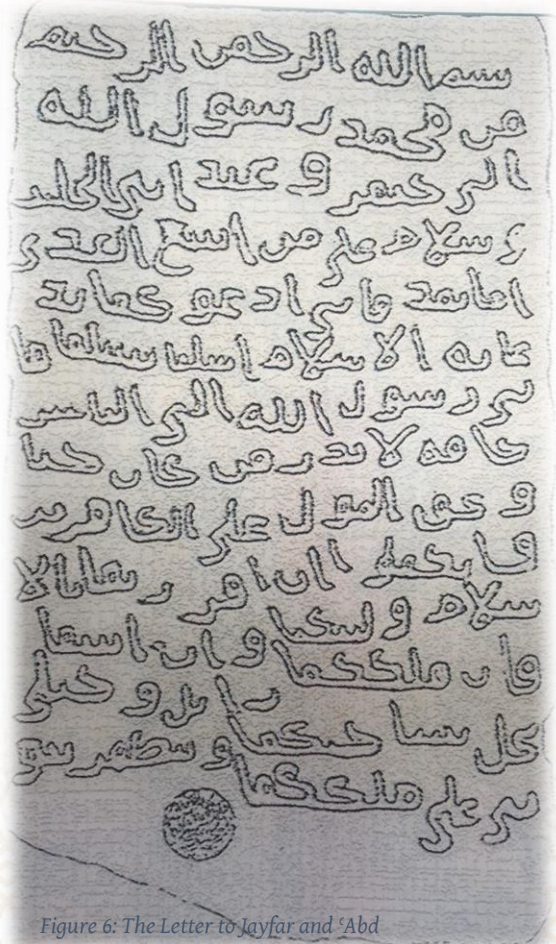 بسم الله الرحمن الرحيم
من محمد رسول الله
الى جيفر و عبد ابني الجلند
ى سلام على من اتبع الهدى
اما بعد فاني ادعو كما بد
عايه الاسلام اسلما تسلما فا
ني رسول الله الى الناس
كافه لانذر من كان حيا
و يحق القول على الكافرين
فانكما ان اقررتما بالا
سلام وليتكما و ان ابيتما
فان ملككما زايل و خيلي
تحل بساحتكما و تظهر نبو
تي على ملككما
Figure 6: The Letter to Jayfar and ʿAbd